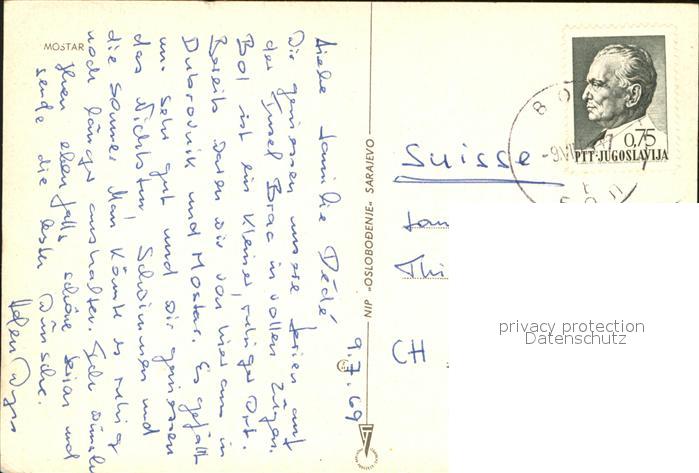 MOSTAR
9.7.69
Liebe Familie Dédé
Wir geniessen unsere Ferien auf
der Insel Brac in vollen Zügen.
Bol ist ein kleiner, ruhiger Ort.
Bereits waren wir von hier aus in
Dubrovnik und Mostar. Es gefällt
uns sehr gut und wir geniessen
das Nichtstun, Schwimmen und
die Sonne. Man könnte es ruhig
noch länger aushalten. Ich wünsche
Ihnen ebenfalls schöne Ferien und
sende die besten Wünsche.
NIP »OSLOBOĐENJE« SARAJEVO
0,75
PTT·JUGOSLAVIJA
BOL
Suisse
Fam
Thi
CH
privacy protection
Datenschutz